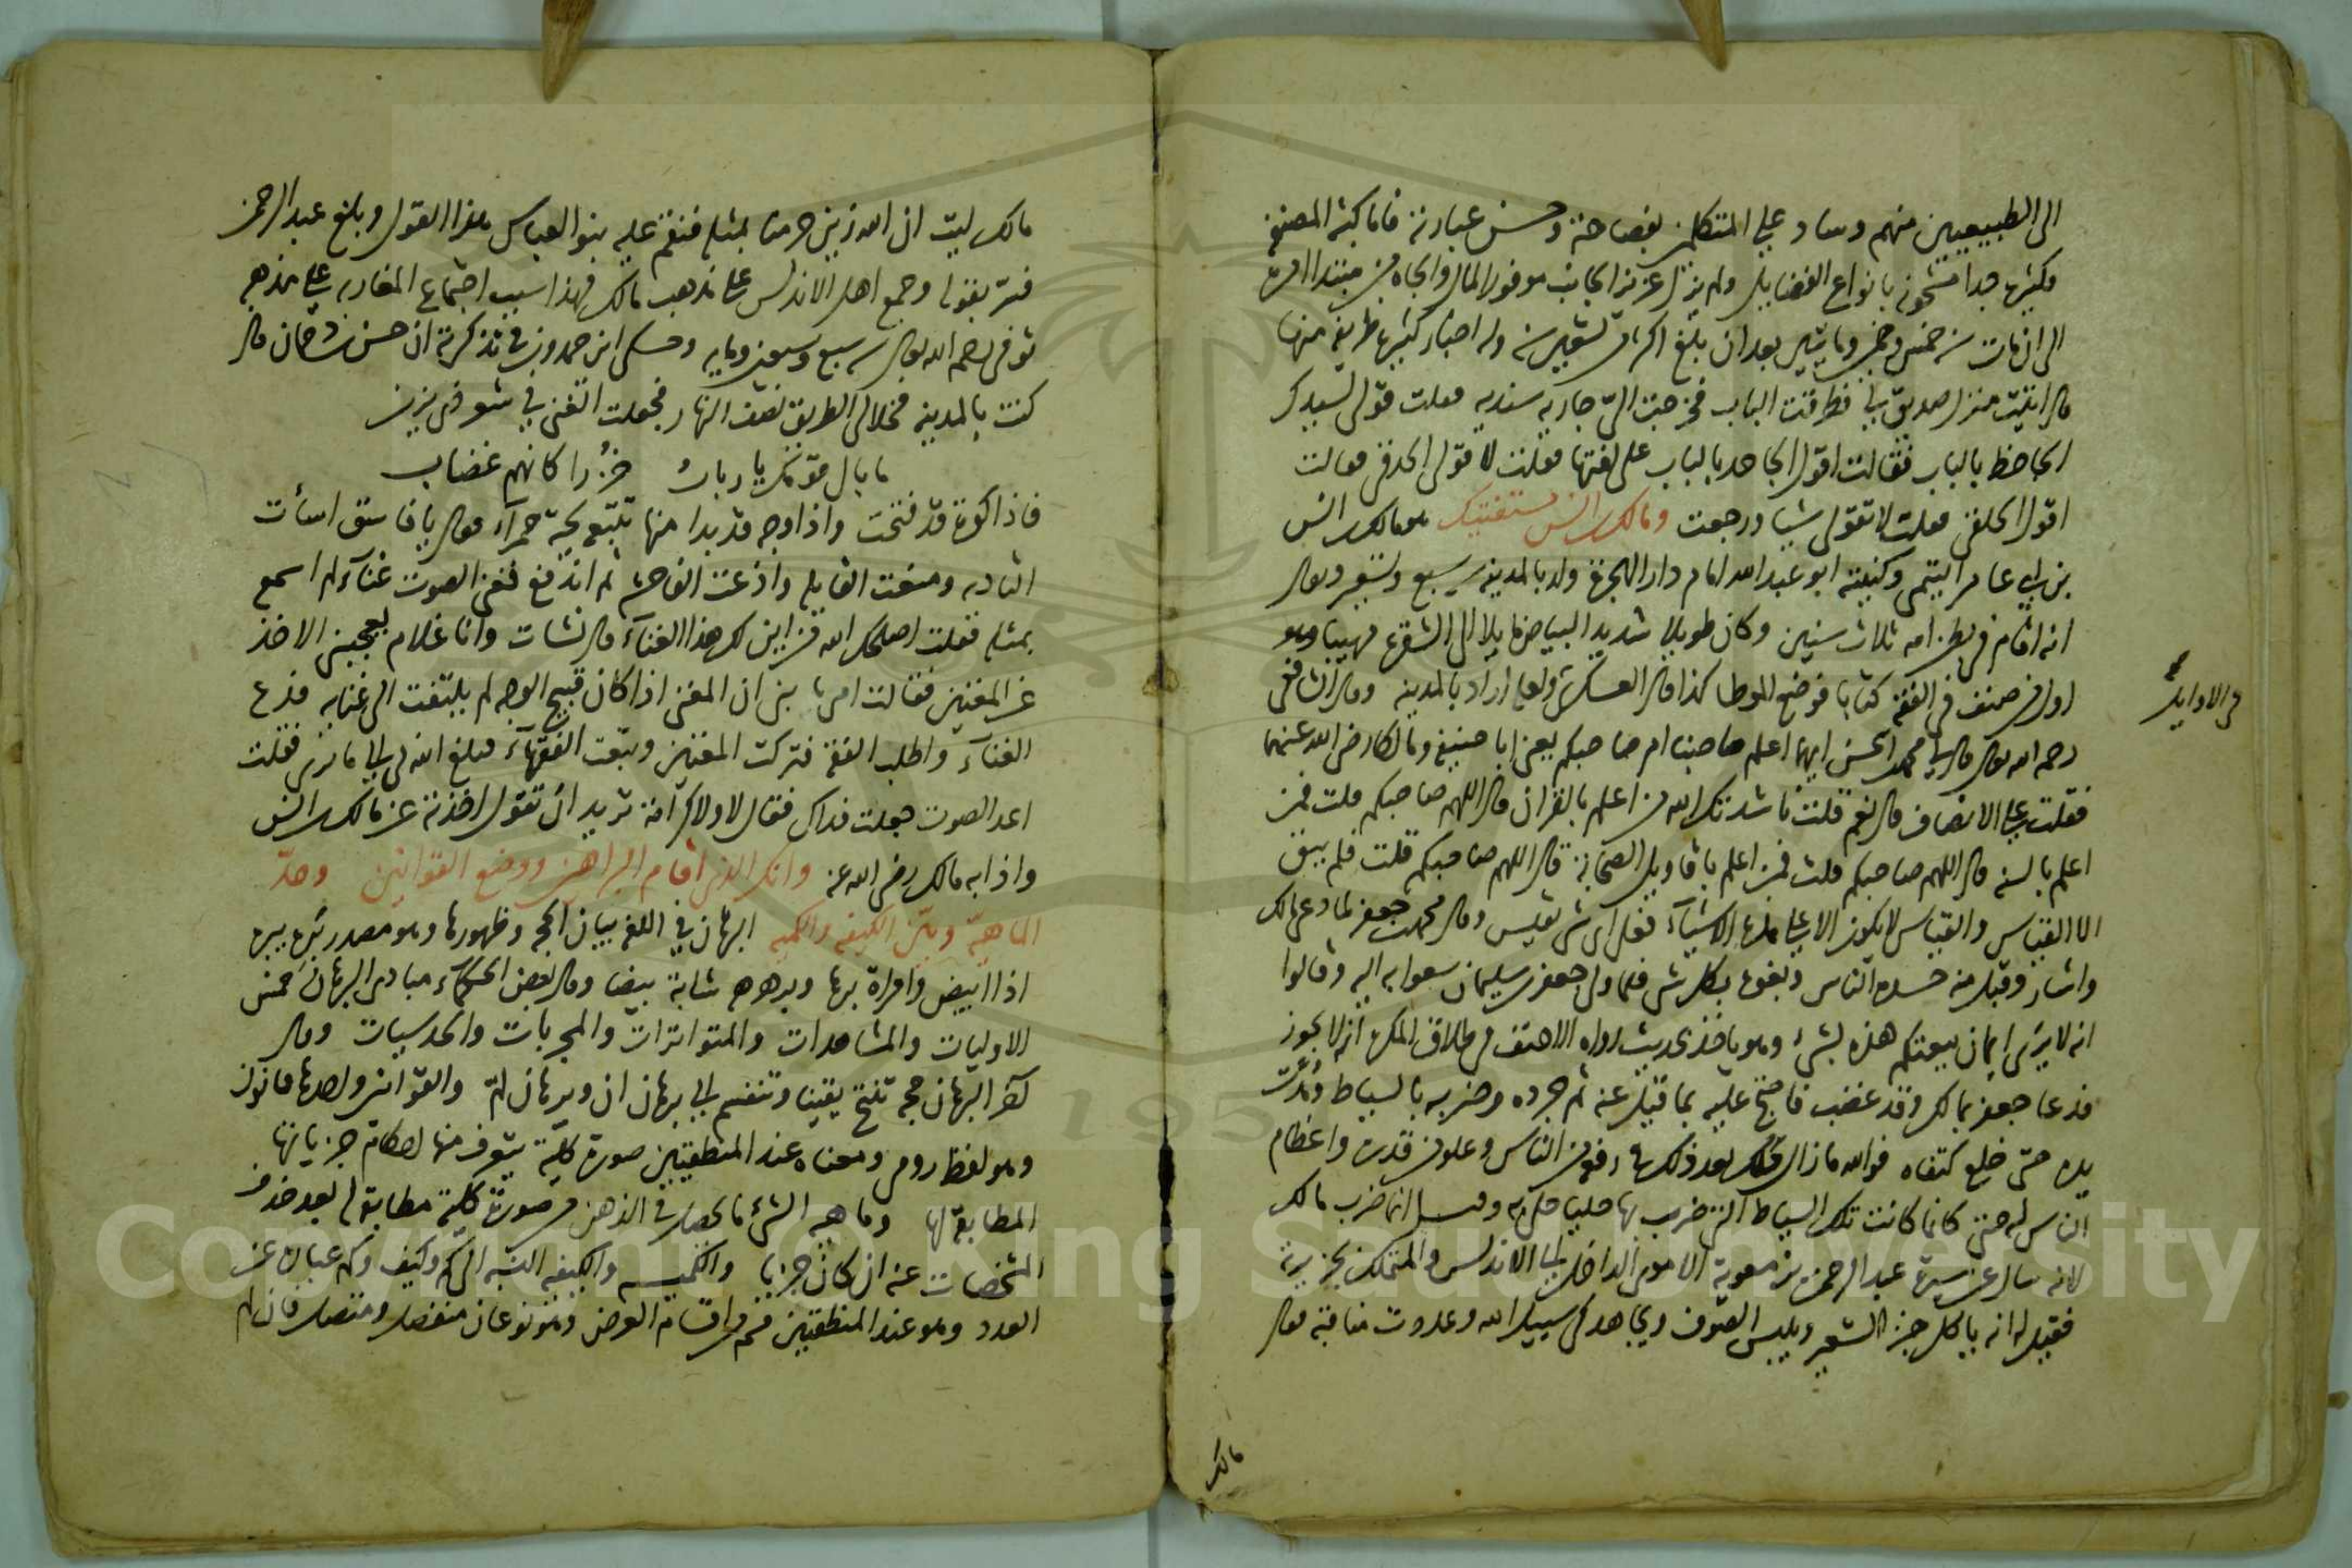 الى الطبيعيين منهم وساد على المتكلمين بفصاحته وحسن عبارته فاما كتبه المصنفة
فكثيرة جدا مشحونة بانواع الفضايل ولم يزل عزيز الجانب موفور المال والجاه من مبتدا امره
الى ان مات سنة خمس وخمسين ومايتين بعد ان بلغ اكثر من تسعين سنة وله اخبار كثيرة طريفة منها
قال اتيت منزل صديق لي فطرقت الباب فخرجت الي جارية سندية فقلت قولي لسيدك
الجاحظ بالباب فقالت اقول الجاحد بالباب على لغتها فقلت لا قولي الحدقي فقالت
اقول الحلقي فقلت لا تقولي شيا ورجعت ومالك بن انس مستفتيك هو مالك بن انس
بن ابي عامر التيمي وكنيته ابو عبد الله امام دار الهجرة ولد بالمدينة سنة سبع وتسعين ويقال
انه اقام في بطن امه ثلاث سنين وكان طويلا شديد البياض مايلا الى الشقرة مهيبا وهو
اول من صنف في الفقه كتابا فوضع الموطا كذا قال العسكري ولعله اراد بالمدينة وقال الشافعي
من الاوايل
رحمه الله تعالى قال لي محمد بن الحسن ايهما اعلم صاحبنا ام صاحبكم يعني ابا حنيفة ومالكا رضي الله عنهما
فقلت على الانصاف قال نعم قلت ناشدتك الله من اعلم بالقران قال اللهم صاحبكم قلت فمن
اعلم بالسنة قال اللهم صاحبكم قلت فمن اعلم باقاويل الصحابة قال اللهم صاحبكم قلت فلم يبق
الا القياس والقياس لا يكون الا على هذه الاشياء فعلى اي شي تقيس وقال محمد بن جعفر لما دعي مالك
واشار وقبل منه حسده الناس وبغوه بكل شي فلما ولي جعفر بن سليمان سعوا به اليه وقالوا
انه لا يرى ايمان بيعتكم هذه بشيء وهو ياخذ بحديث رواه الاحنف في طلاق المكره انه لا يجوز
فدعا جعفر بمالك وقد غضب فاحتج عليه بما قيل عنه ثم جرده وضربه بالسياط ومدت
يده حتى خلع كتفاه فوالله ما زال مالك بعد ذلك في رفعة من الناس وعلو من قدره واعظام
الناس له حتى كانما كانت تلك السياط التي ضرب بها حليا حلي به وقيل انما ضرب مالك
لانه سال عن سيرة عبد الرحمن بن معوية الاموي الداخل الى الاندلس والمتملك بجزيرته
فقيل له انه ياكل خبز الشعير ويلبس الصوف ويجاهد في سبيل الله وعددت مناقبه فقال
مالك
مالك ليت ان الله زين حرمنا بمثله فنقم عليه بنو العباس هذا القول وبلغ عبد الرحمن
فسر بقوله وجمع اهل الاندلس على مذهب مالك فهذا سبب اجتماع المغاربة على مذهبه
توفي رحمه الله تعالى سنة سبع وسبعين ومايه وحكى ابن حمدون في تذكرته ان حسن بن دحمان قال
كنت بالمدينة فخلا لي الطريق نصف النهار فجعلت اتغنى في شعر ذي يزن
ما بال قومك يا رباب خزرا كانهم غضاب
فاذا كوة قد فتحت واذا وجه قد بدا منها تتبعه لحية حمرآء فقال يا فاسق اسأت
التادية ومنعت القايلة واذعت الفاحشة ثم اندفع فغنى الصوت غنآء لم اسمع
بمثله فقلت اصلحك الله من اين لك هذا الغنآء قال نشات وانا غلام يعجبني الاخذ
عن المغنين فقالت امي يا بني ان المغني اذا كان قبيح الوجه لم يلتفت الى غنايه فدع
الغنآء واطلب الفقه فتركت المغنين وتبعت الفقهآء فبلغ الله بي الى ما ترى فقلت
اعد الصوت جعلت فداك فقال لا ولا كرامة تريد ان تقول اخذته عن مالك بن انس
واذا به مالك رضي الله عنه وانك الذي اقام البراهين ووضع القوانين وحدّ
الماهيّة وبيّن الكيفية والكمية البرهان في اللغة بيان الحجة وظهورها وهو مصدر بره يبره
اذا ابيض وامراة برها وبرهرهة شابة بيضا وقال بعض الحكمآء مبادي البرهان خمس
الاوليات والمشاهدات والمتواترات والمجربات والحدسيات وقال
اخر البرهان حجة تنتج يقينا وتنقسم الى برهان ان وبرهان لمّ والقوانين واحدها قانون
وهو لفظ رومي ومعناه عند المنطقيين صورة كلية يتعرف منها احكام جزياتها
المطابقة لها وماهية الشيء ما يحصل في الذهن من صورة كلية مطابقة له بعد حذف
المشخصات عنه ان كان جزيا والكمية والكيفية النسبة الى كم وكيف وكم عبارة عن
العدد وهو عند المنطقيين قسم من اقسام العرض وهو نوعان منفصل ومتصل فان لم
Copyright © King Saud University
195